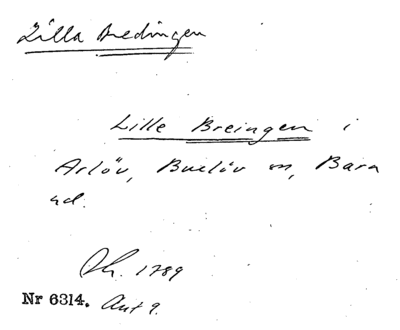 Lilla Bredingen
Lille Breingen i
Arlöv, Burlöv sn, Bara
hd.
1789
Nr 6314. Akt 9.